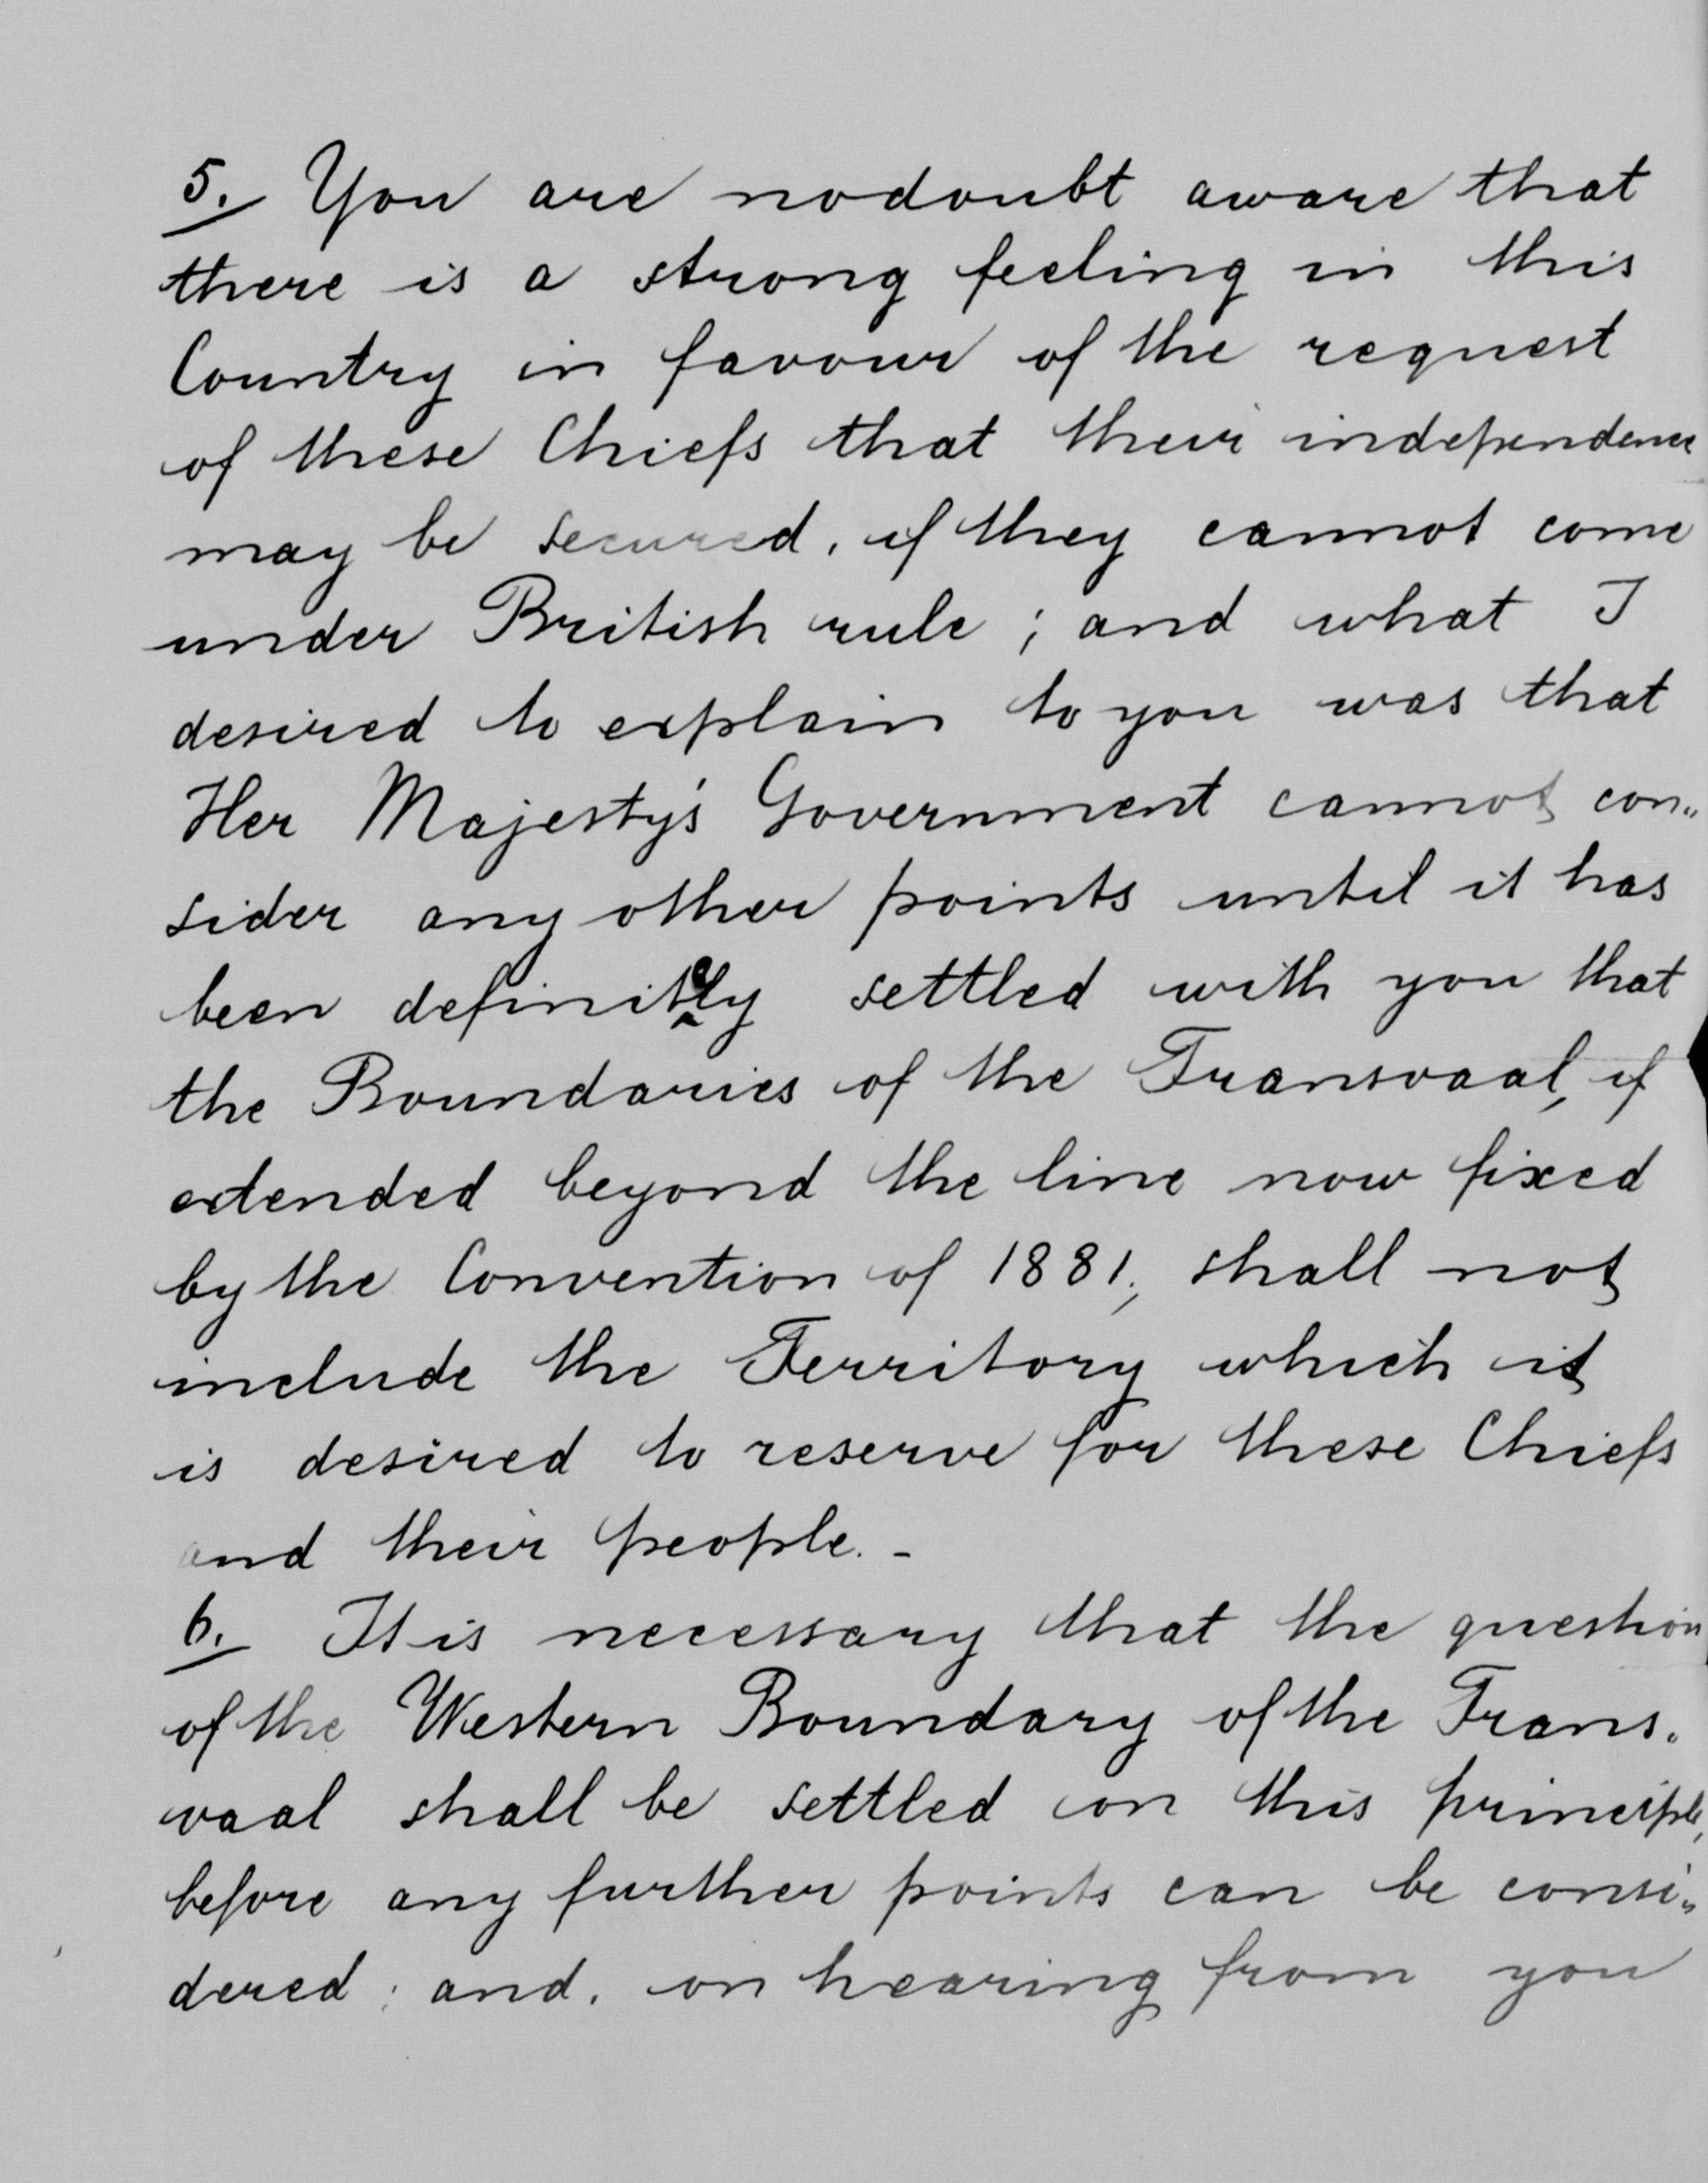 5. You are nodoubt aware that
there is a strong feeling in this
Country in favour of the request
of these Chiefs that their independence
may be secured, if they cannot come
under British rule ; and what I
desired to explain to you was that
Her Majesty's Government cannot con„
sider any other points until it has
been definitely settled with you that
the Boundaries of the Transvaal, if
extended beyond the line now fixed
by the Convention of 1881, shall not
include the Territory which it
is desired to reserve for these Chiefs
and their people. -
6. It is necessary that the question
of the Western Boundary of the Trans„
vaal shall be settled on this principle,
before any further points can be consi„
dered ; and, on hearing from you